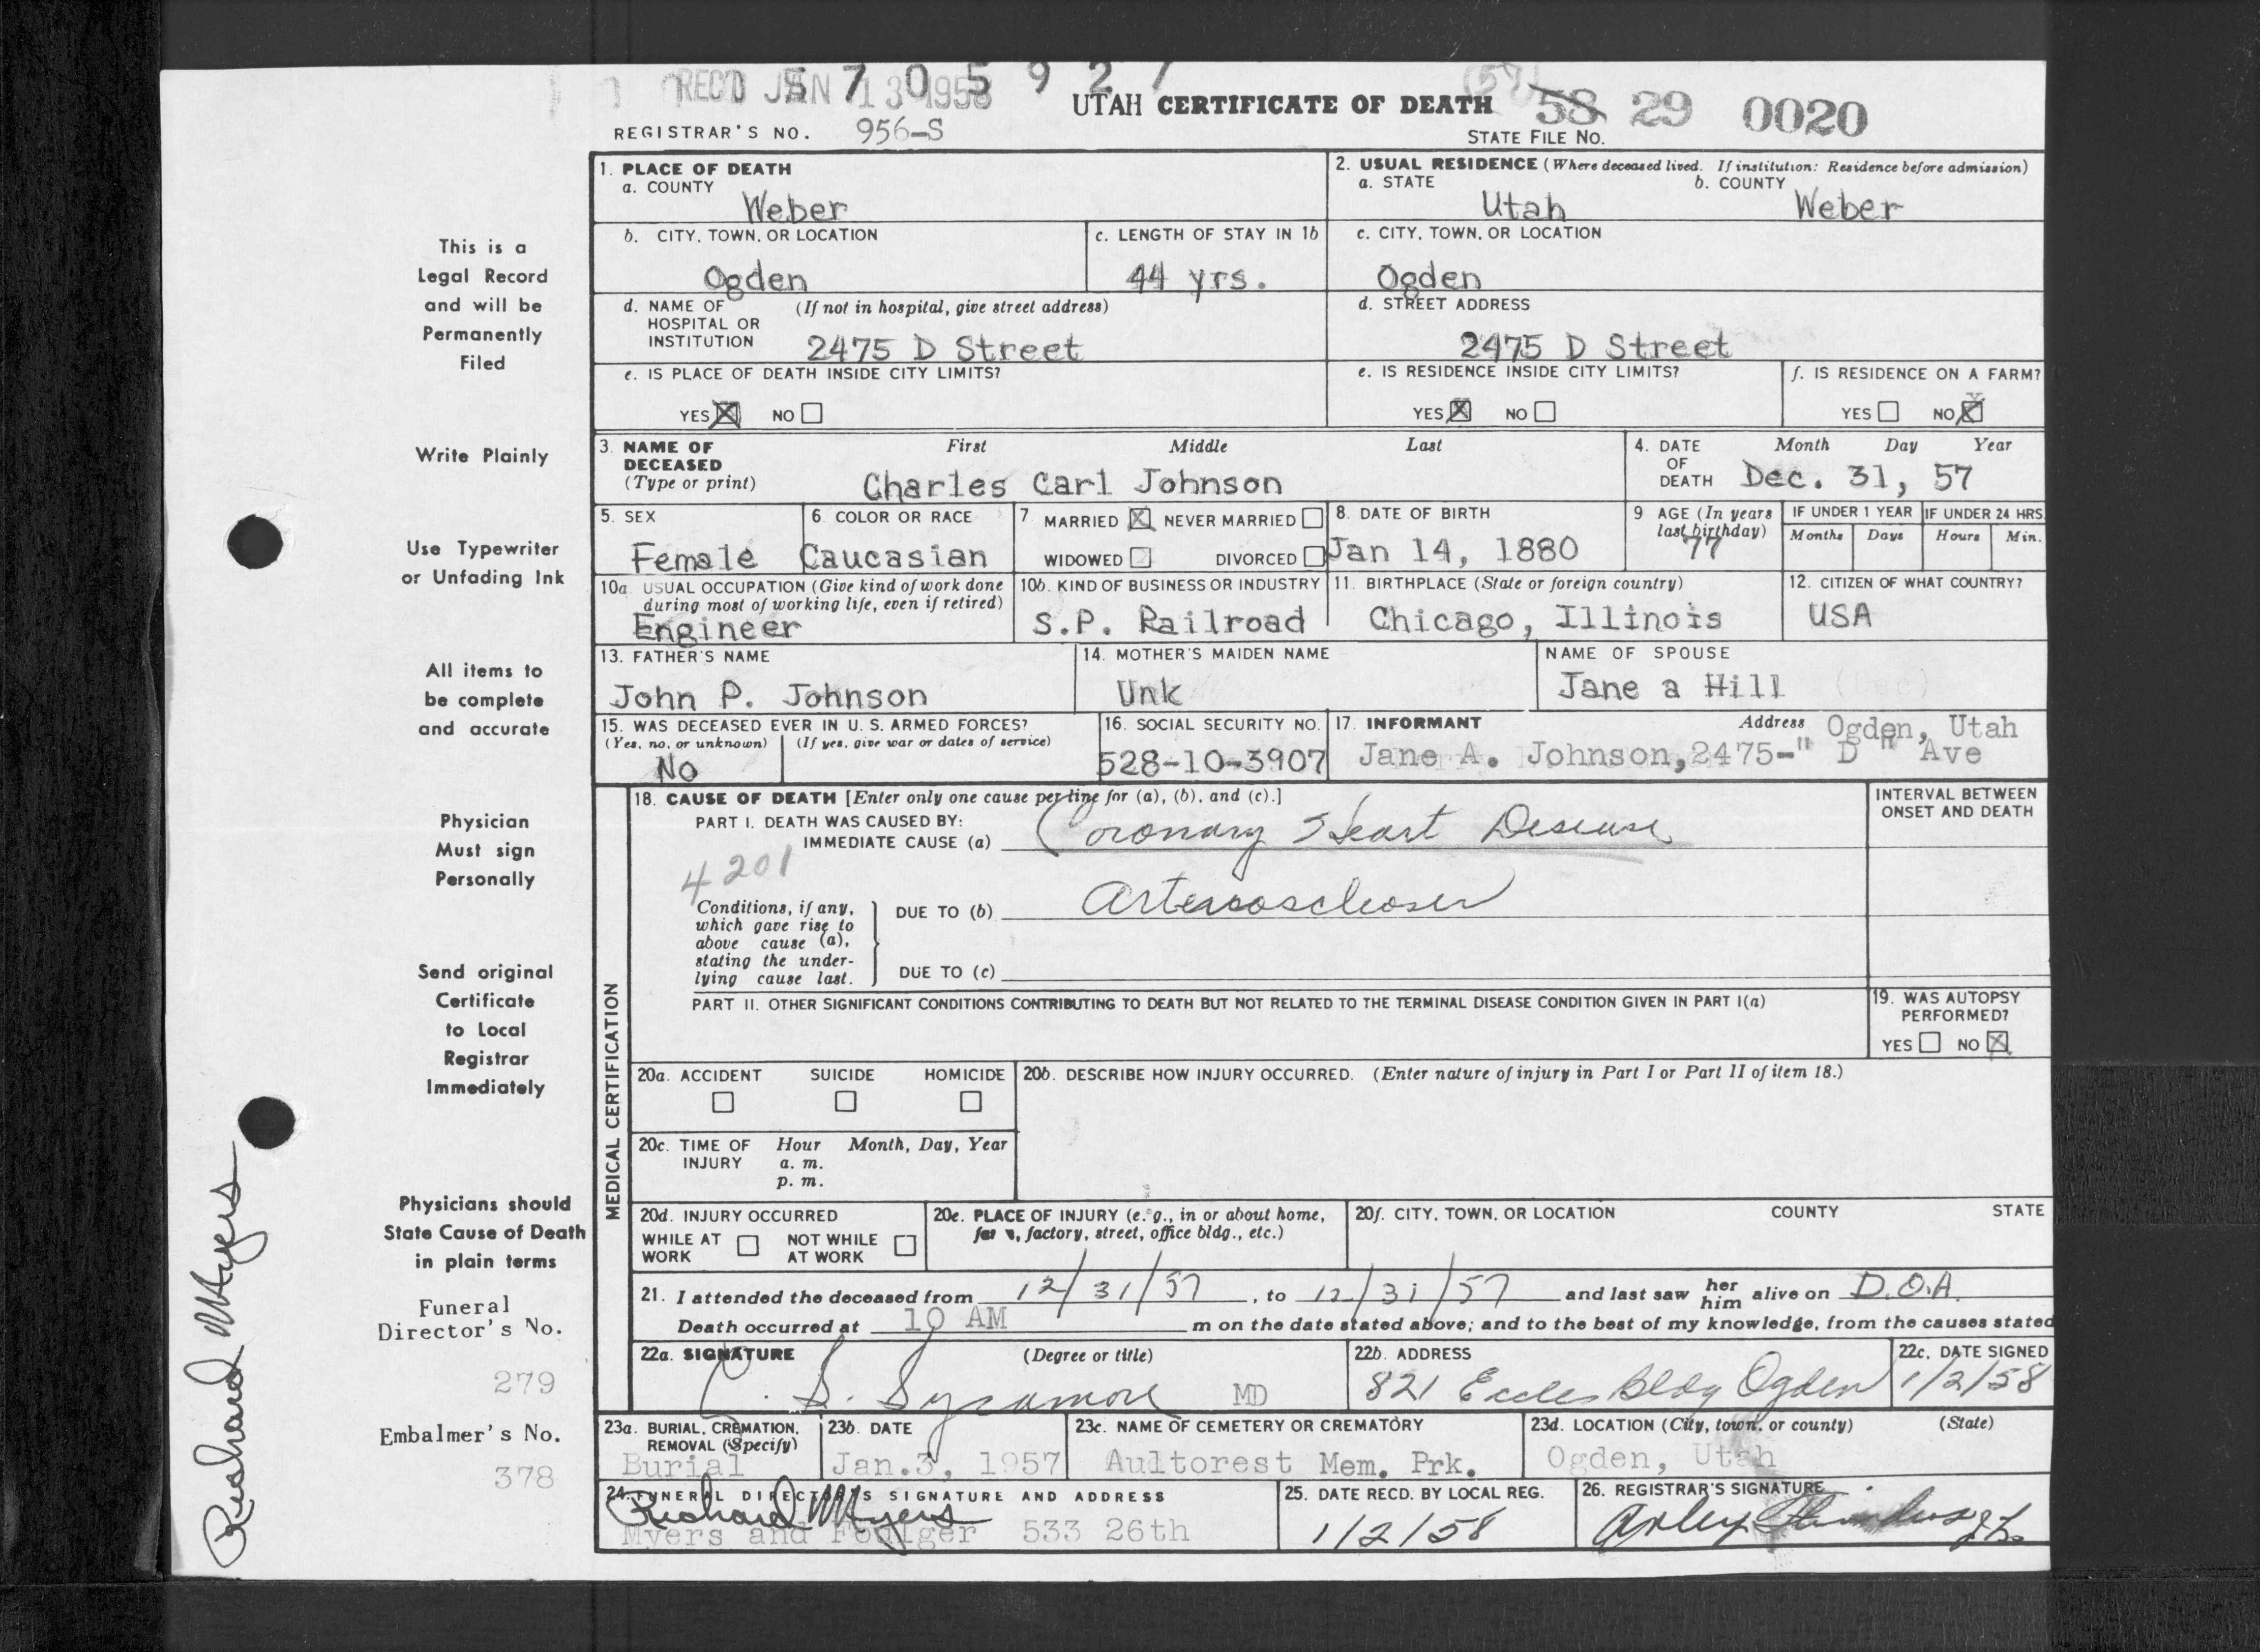 REC'D JAN 13 1958
5 7 0 5 9 2 7
UTAH CERTIFICATE OF DEATH
58 29 0020
REGISTRAR'S NO. 956-S
STATE FILE NO.
1. PLACE OF DEATH
a. COUNTY
Weber
2. USUAL RESIDENCE (Where deceased lived. If institution: Residence before admission)
a. STATE b. COUNTY
Utah Weber
b. CITY, TOWN, OR LOCATION
Ogden
c. LENGTH OF STAY IN 1b
44 yrs.
c. CITY, TOWN, OR LOCATION
Ogden
d. NAME OF HOSPITAL OR INSTITUTION (If not in hospital, give street address)
2475 D Street
d. STREET ADDRESS
2475 D Street
e. IS PLACE OF DEATH INSIDE CITY LIMITS?
YES NO
e. IS RESIDENCE INSIDE CITY LIMITS?
YES NO
f. IS RESIDENCE ON A FARM?
YES NO
3. NAME OF DECEASED (Type or print)
First Middle Last
Charles Carl Johnson
4. DATE OF DEATH
Month Day Year
Dec. 31, 57
5. SEX
Female
6. COLOR OR RACE
Caucasian
7. MARRIED NEVER MARRIED
WIDOWED DIVORCED
8. DATE OF BIRTH
Jan 14, 1880
9 AGE (In years last birthday)
77
IF UNDER 1 YEAR
Months Days
IF UNDER 24 HRS.
Hours Min.
10a. USUAL OCCUPATION (Give kind of work done during most of working life, even if retired)
Engineer
10b. KIND OF BUSINESS OR INDUSTRY
S.P. Railroad
11. BIRTHPLACE (State or foreign country)
Chicago, Illinois
12. CITIZEN OF WHAT COUNTRY?
USA
13. FATHER'S NAME
John P. Johnson
14. MOTHER'S MAIDEN NAME
Unk
NAME OF SPOUSE
Jane a Hill
15. WAS DECEASED EVER IN U. S. ARMED FORCES?
(Yes, no, or unknown) (If yes, give war or dates of service)
No
16. SOCIAL SECURITY NO.
528-10-3907
17. INFORMANT Address
Ogden, Utah
Jane A. Johnson, 2475-" D " Ave
MEDICAL CERTIFICATION
18. CAUSE OF DEATH [Enter only one cause per line for (a), (b), and (c).]
PART I. DEATH WAS CAUSED BY:
IMMEDIATE CAUSE (a) Coronary Heart Disease
4201
Conditions, if any, which gave rise to above cause (a), stating the underlying cause last.
DUE TO (b) Arteriosclerosis
DUE TO (c)
INTERVAL BETWEEN ONSET AND DEATH
PART II. OTHER SIGNIFICANT CONDITIONS CONTRIBUTING TO DEATH BUT NOT RELATED TO THE TERMINAL DISEASE CONDITION GIVEN IN PART I(a)
19. WAS AUTOPSY PERFORMED?
YES NO
20a. ACCIDENT SUICIDE HOMICIDE
20b. DESCRIBE HOW INJURY OCCURRED. (Enter nature of injury in Part I or Part II of item 18.)
20c. TIME OF INJURY Hour Month, Day, Year
a. m.
p. m.
20d. INJURY OCCURRED
WHILE AT WORK NOT WHILE AT WORK
20e. PLACE OF INJURY (e. g., in or about home, factory, street, office bldg., etc.)
20f. CITY, TOWN, OR LOCATION COUNTY STATE
21. I attended the deceased from 12/31/57, to 12/31/57 and last saw her him alive on D.O.A.
Death occurred at 10 AM m on the date stated above; and to the best of my knowledge, from the causes stated
22a. SIGNATURE (Degree or title)
MD
22b. ADDRESS
821 Eccles Bldg Ogden
22c. DATE SIGNED
1/2/58
23a. BURIAL, CREMATION, REMOVAL (Specify)
Burial
23b. DATE
Jan.3, 1957
23c. NAME OF CEMETERY OR CREMATORY
Aultorest Mem. Prk.
23d. LOCATION (City, town, or county) (State)
Ogden, Utah
24. FUNERAL DIRECTOR'S SIGNATURE AND ADDRESS
Richard Myers
Myers and Foulger 533 26th
25. DATE RECD. BY LOCAL REG.
1/2/58
26. REGISTRAR'S SIGNATURE
This is a
Legal Record
and will be
Permanently
Filed
Write Plainly
Use Typewriter
or Unfading Ink
All items to
be complete
and accurate
Physician
Must sign
Personally
Send original
Certificate
to Local
Registrar
Immediately
Physicians should
State Cause of Death
in plain terms
Funeral
Director's No.
279
Embalmer's No.
378
Richard Myers